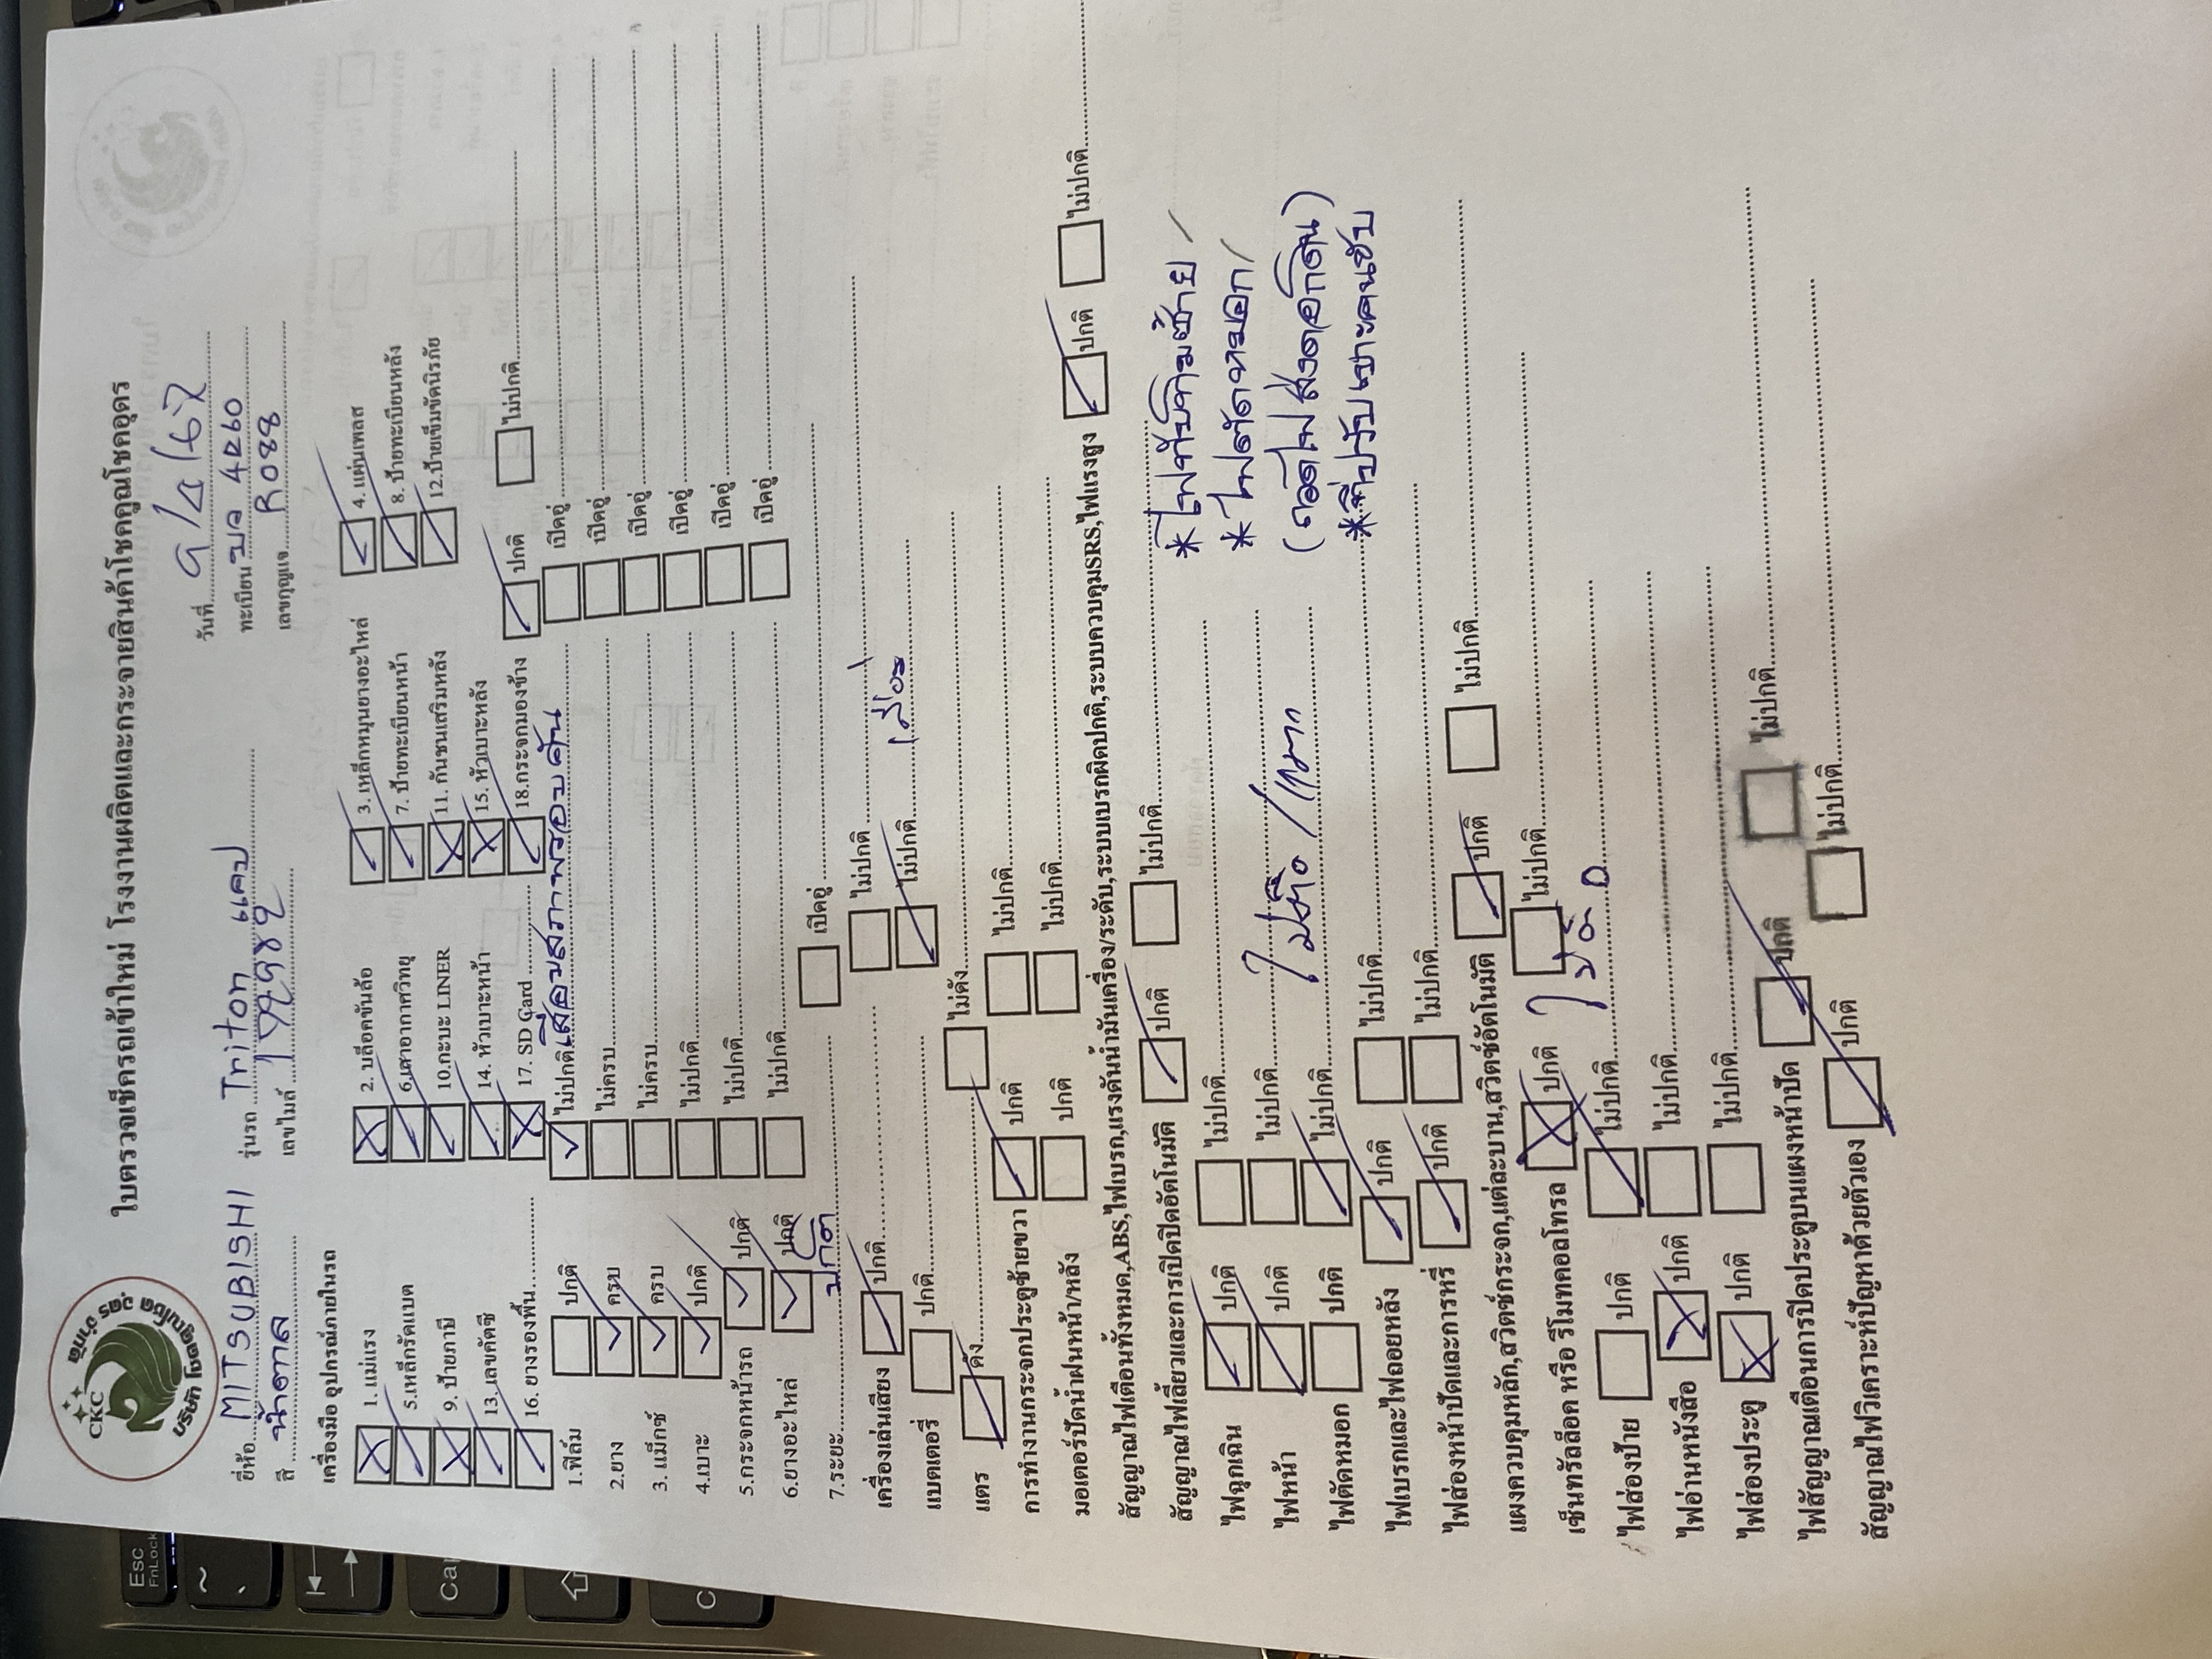 ใบตรวจเช็ครถเข้าใหม่ โรงงานผลิตและกระจายสินค้าโชคคูณโชคอุดร
CKC
บริษัท โชคคูณโชค อุดร จำกัด
วันที่
ยี่ห้อ MITSUBISHI รุ่นรถ Triton แคป ทะเบียน 4260
สี น้ำตาล เลขไมล์ เลขกุญแจ R088
เครื่องมือ อุปกรณ์ภายในรถ
1. แม่แรง 2. บล็อคขันล้อ 3. เหล็กหมุนยางอะไหล่ 4. แผ่นเพลส
5.เหล็กรัดแบต 6.เสาอากาศวิทยุ 7. ป้ายทะเบียนหน้า 8. ป้ายทะเบียนหลัง
9. ป้ายภาษี 10.กะบะ LINER 11. กันชนเสริมหลัง 12.ป้ายเข็มขัดนิรภัย
13. เลขคัตซี 14. หัวเบาะหน้า 15. หัวเบาะหลัง
16. ยางรองพื้น 17. SD Card 18.กระจกมองข้าง ปกติ ไม่ปกติ
1.ฟิล์ม ปกติ ไม่ปกติ เสื่อมสภาพรอบคัน เปิดอู่
2.ยาง ครบ ไม่ครบ เปิดอู่
3. แม็กซ์ ครบ ไม่ครบ เปิดอู่
4.เบาะ ปกติ ไม่ปกติ เปิดอู่
5.กระจกหน้ารถ ปกติ ไม่ปกติ เปิดอู่
6.ยางอะไหล่ ปกติ ไม่ปกติ เปิดอู่
7.ระยะ ปกติ เปิดอู่
เครื่องเล่นเสียง ปกติ ไม่ปกติ
แบตเตอรี่ ปกติ ไม่ปกติ เสื่อม
แตร ดัง ไม่ดัง
การทำงานกระจกประตูซ้ายขวา ปกติ ไม่ปกติ
มอเตอร์ปัดน้ำฝนหน้า/หลัง ปกติ ไม่ปกติ
สัญญาณไฟเตือนทั้งหมด,ABS,ไฟเบรก,แรงดันน้ำมันเครื่อง/ระดับ,ระบบเบรกผิดปกติ,ระบบควบคุมSRS,ไฟแรงสูง ปกติ ไม่ปกติ
สัญญาณไฟเลี้ยวและการเปิดปิดอัตโนมัติ ปกติ ไม่ปกติ
ไฟฉุกเฉิน ปกติ ไม่ปกติ
* ไฟทับทิมซ้าย /
ไฟหน้า ปกติ ไม่ปกติ
* ไฟตัดหมอก /
ไฟตัดหมอก ปกติ ไม่ปกติ ไม่ติด / แตก
ไฟเบรกและไฟถอยหลัง ปกติ ไม่ปกติ
* ที่ปรับเบาะคนขับ
ไฟส่องหน้าปัดและการหรี่ ปกติ ไม่ปกติ
แผงควบคุมหลัก,สวิตซ์กระจก,แต่ละบาน,สวิตซ์อัตโนมัติ ปกติ ไม่ปกติ
เซ็นทรัลล็อค หรือ รีโมทคอลโทรล ปกติ ไม่ปกติ
ไฟส่องป้าย ปกติ ไม่ปกติ
ไฟอ่านหนังสือ ปกติ ไม่ปกติ
ไฟส่องประตู ปกติ ไม่ปกติ
ไฟสัญญาณเตือนการปิดประตูบนแผงหน้าปัด ปกติ ไม่ปกติ
สัญญาณไฟวิเคราะห์ปัญหาด้วยตัวเอง ปกติ ไม่ปกติ
Esc
FnLock